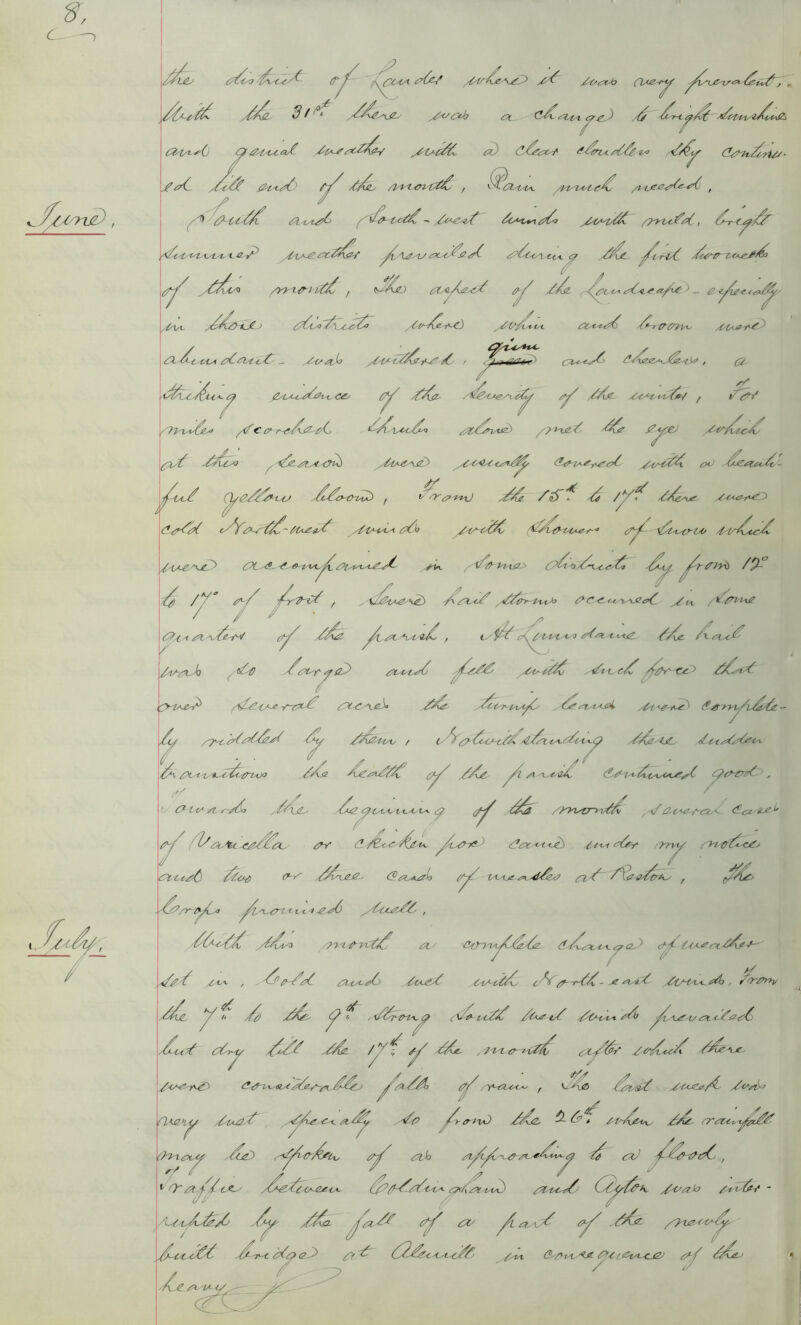 8,
the district of Saunder where it was very prevalent,
With the 31st there was a change to bright sunshine
and genial weather with a clear cloudless sky continu-
ed till end of the month, Rain much needed,
June,
South and South-west winds with mild, bright
summer weather prevailed during the first two weeks
of this month, The aspect of the landscape - especially
in those districts where whin and broom were
abundant - was withered, grim and cheerless, a
striking evidence of the severity of the winter, For
miles scorched shrubs alone met the eye which
at this season were usually covered with a beauti-
ful yellow bloom, From the 15th to 17th there were
cold North-west winds with showers of snow which
were accompanied in some districts by from 12°
to 17° of frost, Severe hail storms occurred in some
quarters of the parish, At the hail
was so large and fell with such force that
over several acres the turnip leaves were complete-
ly riddled by them, Notwithstanding these sudden
transitions the health of the parish continued good.
Towards the beginning of the month several cases
of Varicella or chicken pox came under my notice
and two or three cases of measles at Reston, The
Crops promised well,
July,
With this month a complete change of weather
set in, Cold and wet with North-east winds, From
the 7th to the 9th strong South West winds prevailed
but dry till the 17th of the month after which there
were considerable falls of rain, The last week was
very wet specially so from the 26th when the rainfall
may be spoken of as approaching to a flood,
Traffic between Coldingham and Ayton was inter-
rupted by the fall of a part of the newly
built bridge at Alemill in consequence of the
heavy